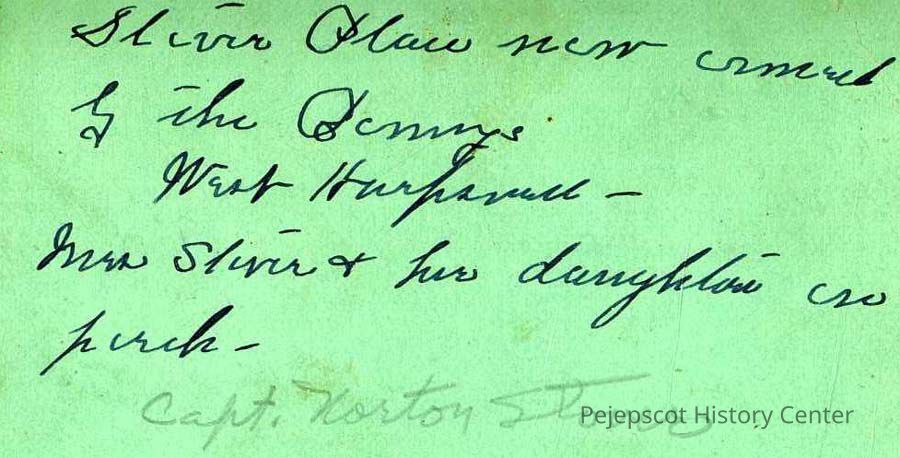 Stover Place now owned
by the Pennys
West Harpswell –
Mrs Stover & her daughter on
porch –
Capt. Norton Stover
Pejepscot History Center